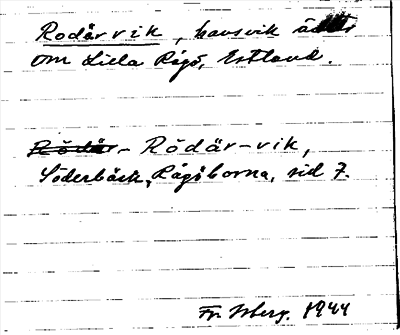 Rodärvik, havsvik
om Lilla Rågö, Estland.
Rödär-vik,
Söderbäck, Rågöborna, sid 7.
Fr. Isberg. 1944